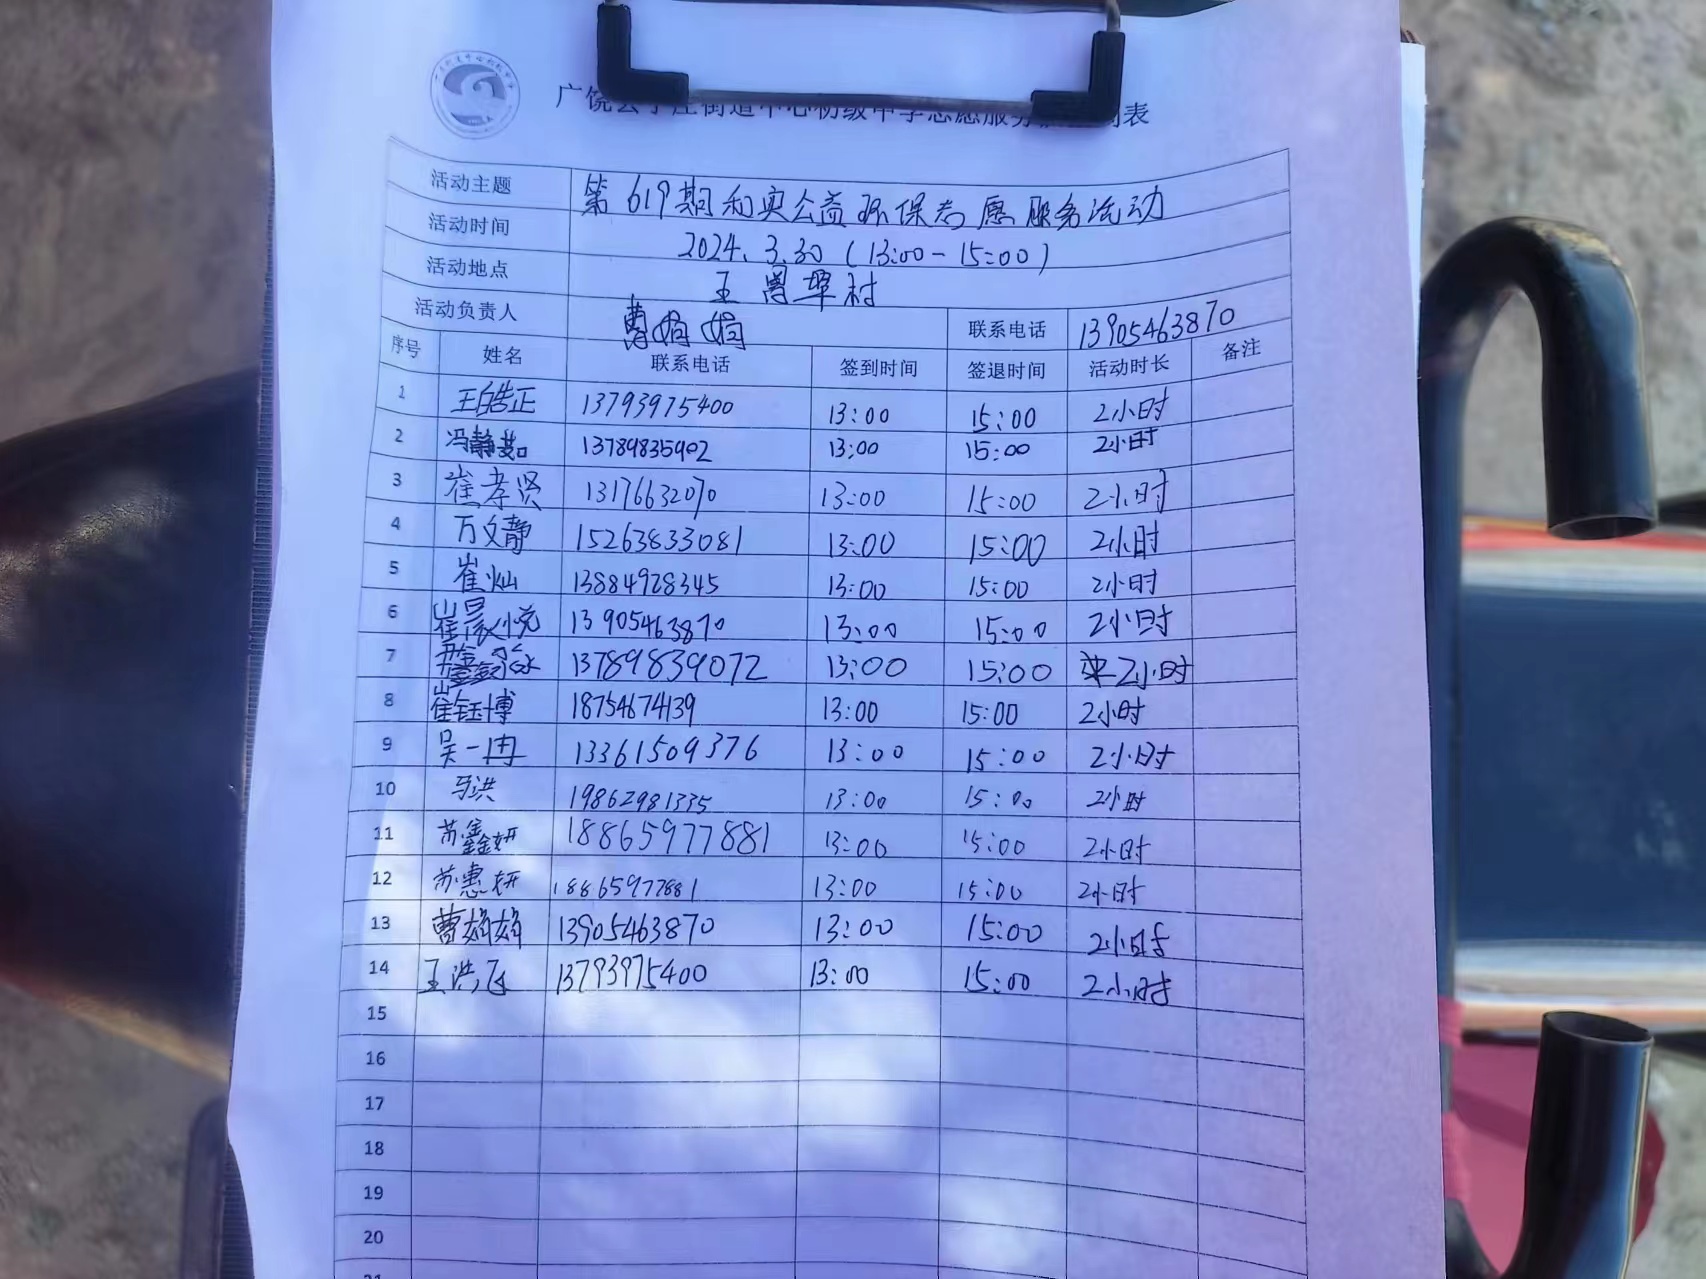 广饶县丁庄街道中心初级中学志愿服务 表
活动主题 第619期和实公益环保志愿服务活动
活动时间 2024.3.30 (13:00-15:00)
活动地点 王署埠村
活动负责人 曹娟娟 联系电话 13905463870
序号 姓名 联系电话 签到时间 签退时间 活动时长 备注
1 王皓正 13793975400 13:00 15:00 2小时
2 冯静茹 13789835902 13:00 15:00 2小时
3 崔孝贤 13176632070 13:00 15:00 2小时
4 万文静 15263833081 13:00 15:00 2小时
5 崔灿 13884928345 13:00 15:00 2小时
6 崔晟悦 13905463870 13:00 15:00 2小时
7 13789839072 13:00 15:00 2小时
8 崔钰博 18754674139 13:00 15:00 2小时
9 吴一冉 13361509376 13:00 15:00 2小时
10 马洪 19862981335 13:00 15:00 2小时
11 苏鑫妍 18865977881 13:00 15:00 2小时
12 苏惠妍 18865977881 13:00 15:00 2小时
13 曹娟娟 13905463870 13:00 15:00 2小时
14 王洪飞 13793975400 13:00 15:00 2小时
15
16
17
18
19
20